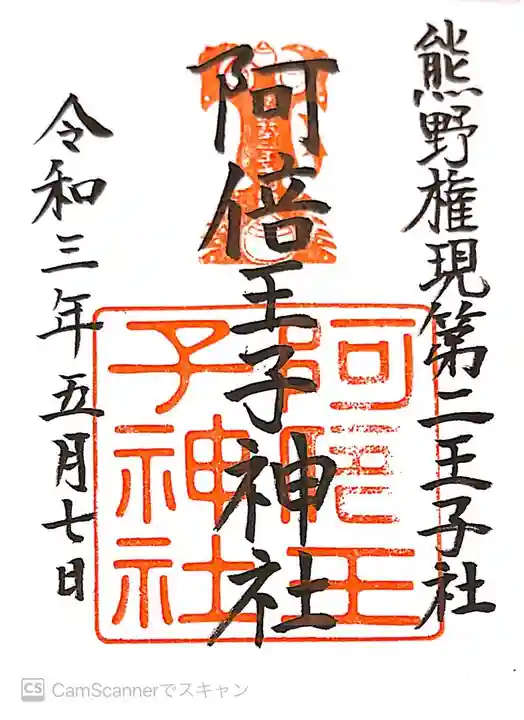 熊野権現第二王子社
阿倍王子神社
令和三年五月七日
子神社
CS CamScannerでスキャン